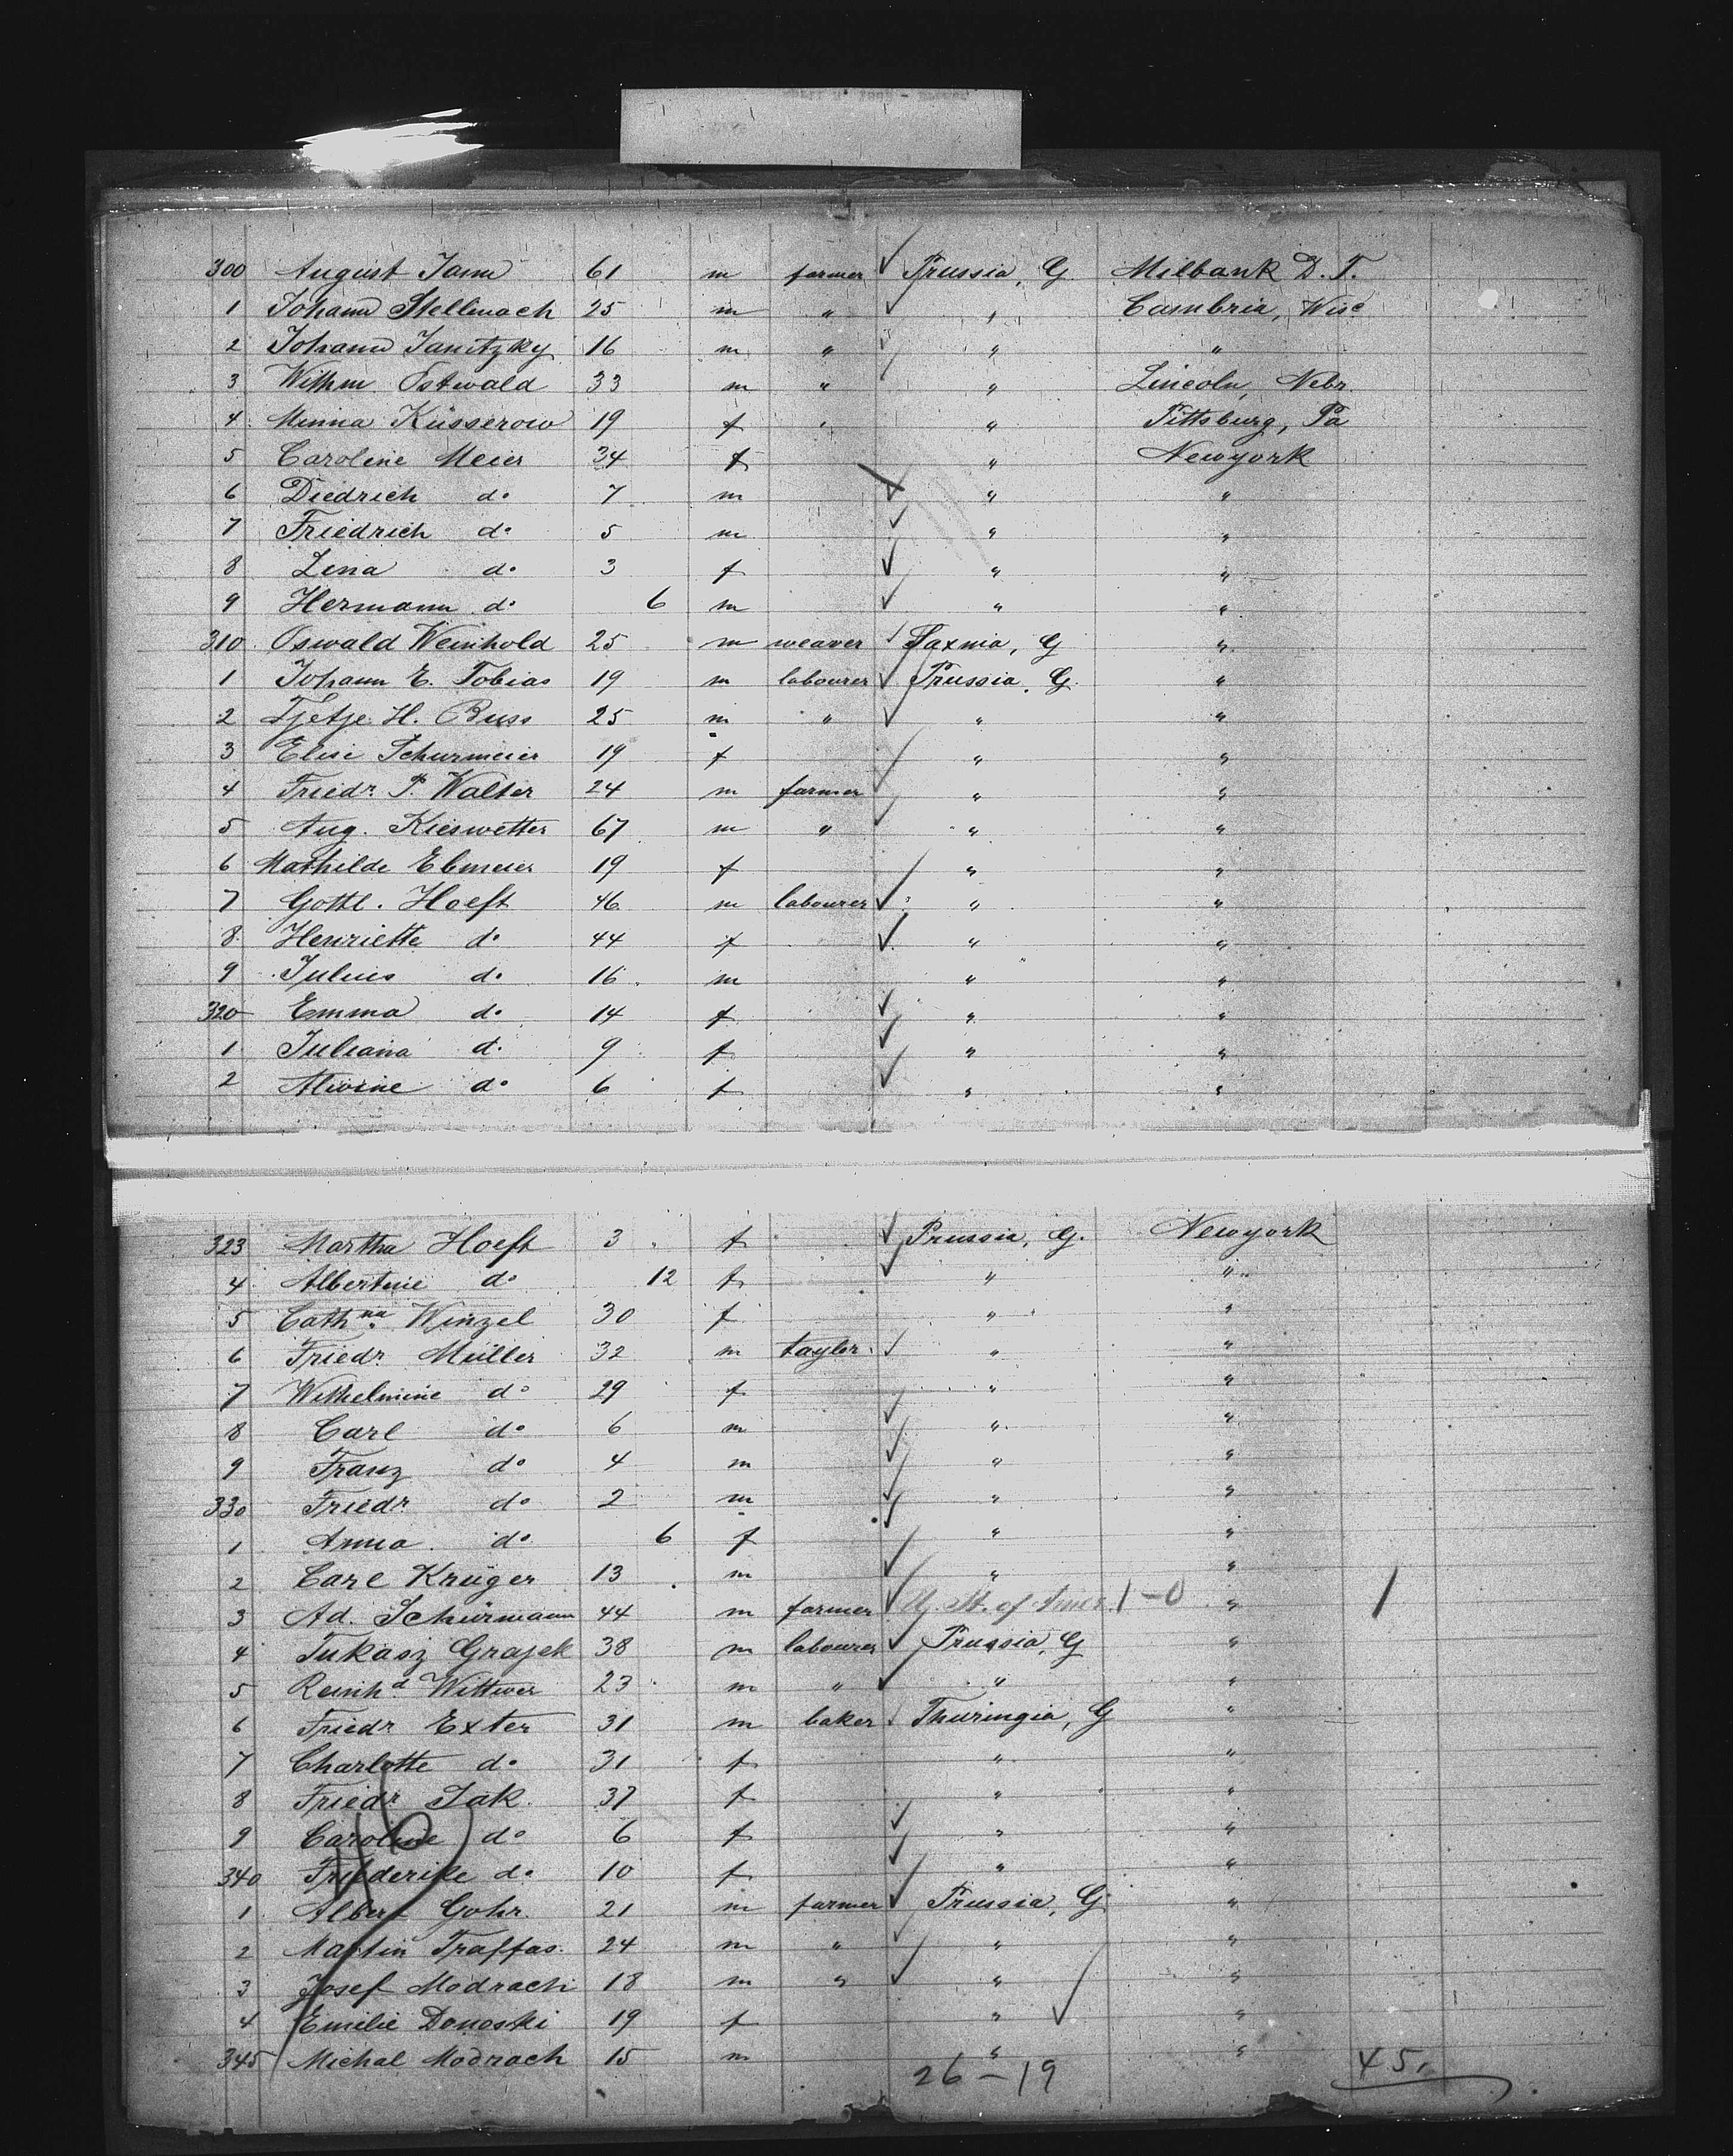 300 August Jann 61 m farmer Prussia, G Milbank D. T.
1 Johann Stellmach 25 m " " Cambria, Wisc
2 Johann Janitzky 16 m " " "
3 Wilhm Ostwald 33 m " " Lincoln, Nebr
4 Minna Küsserow 19 f " " Pittsburg, Pa
5 Caroline Meier 34 f " Newyork
6 Diedrich do 7 m " "
7 Friedrich do 5 m " "
8 Lina do 3 f " "
9 Hermann do 6 m " "
310 Oswald Weinhold 25 m weaver Saxnia, G "
1 Johann E. Tobias 19 m labourer Prussia, G "
2 Tjetje H. Buss 25 m " " "
3 Elise Schurmeier 19 f " "
4 Friedr P. Walter 24 m farmer " "
5 Aug. Kieswetter 67 m " " "
6 Mathilde Ebmeier 19 f " "
7 Gottl. Hoeft 46 m labourer " "
8 Henriette do 44 f " "
9 Julius do 16 m " "
320 Emma do 14 f " "
1 Juliana do 9 f " "
2 Alwine do 6 f " "
323 Martha Hoeft 3 f Prussia, G. Newyork
4 Albertine do 12 f " "
5 Cathna Winzel 30 f " "
6 Friedr Müller 32 m taylor " "
7 Wilhelmine do 29 f " "
8 Carl do 6 m " "
9 Franz do 4 m " "
330 Friedr do 2 m " "
1 Anna do 6 f " "
2 Carl Krüger 13 m " "
3 Ad. Schürmann 44 m farmer U. St. of Amer. 1-0 " 1
4 Lukasz Grajek 38 m labourer Prussia, G "
5 Reinhd Wittwer 23 m " " "
6 Friedr Exter 31 m baker Thüringia, G "
7 Charlotte do 31 f " "
8 Friedr Jak 37 f " "
9 Caroline do 6 f " "
340 Friederike do 10 f " "
1 Albert Gohr 21 m farmer Prussia, G "
2 Martin Traffas 24 m " " "
3 Josef Modrach 18 m " " "
4 Emilie Donoski 19 f " "
345 Michal Modrach 15 m " "
26-19 45